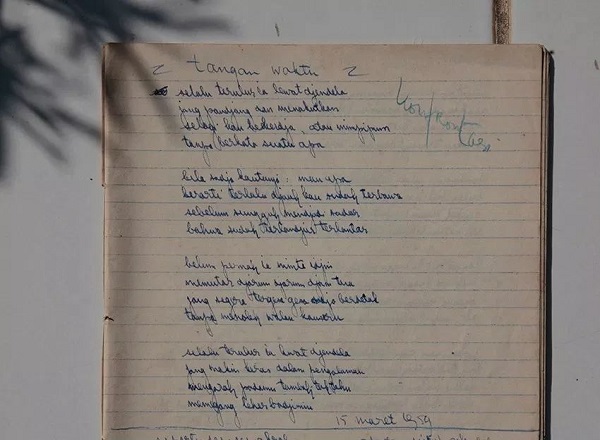 tangan waktu
Konfrontasi
selalu terulur ia lewat djendela
jang pandjang dan menakutkan
selagi kau bekerdja, atau mimpipun
tanpa berkata suatu apa
bila sadja kautanja: mau apa
berarti terlalu djauh kau sudah terbawa
sebelum sungguh mendjadi sadar
bahwa sudah terlandjur terlantar
belum pernah ia minta idjin
memutar djarum djarum djam tua
jang segera tergesa gesa sadja berdetak
tanpa menoleh walau kauseru
selalu terulur ia lewat djendela
jang makin keras dalam pengalaman
mengarah padamu tambah tak tahu
memegang leher badjumu
15 maret 1959